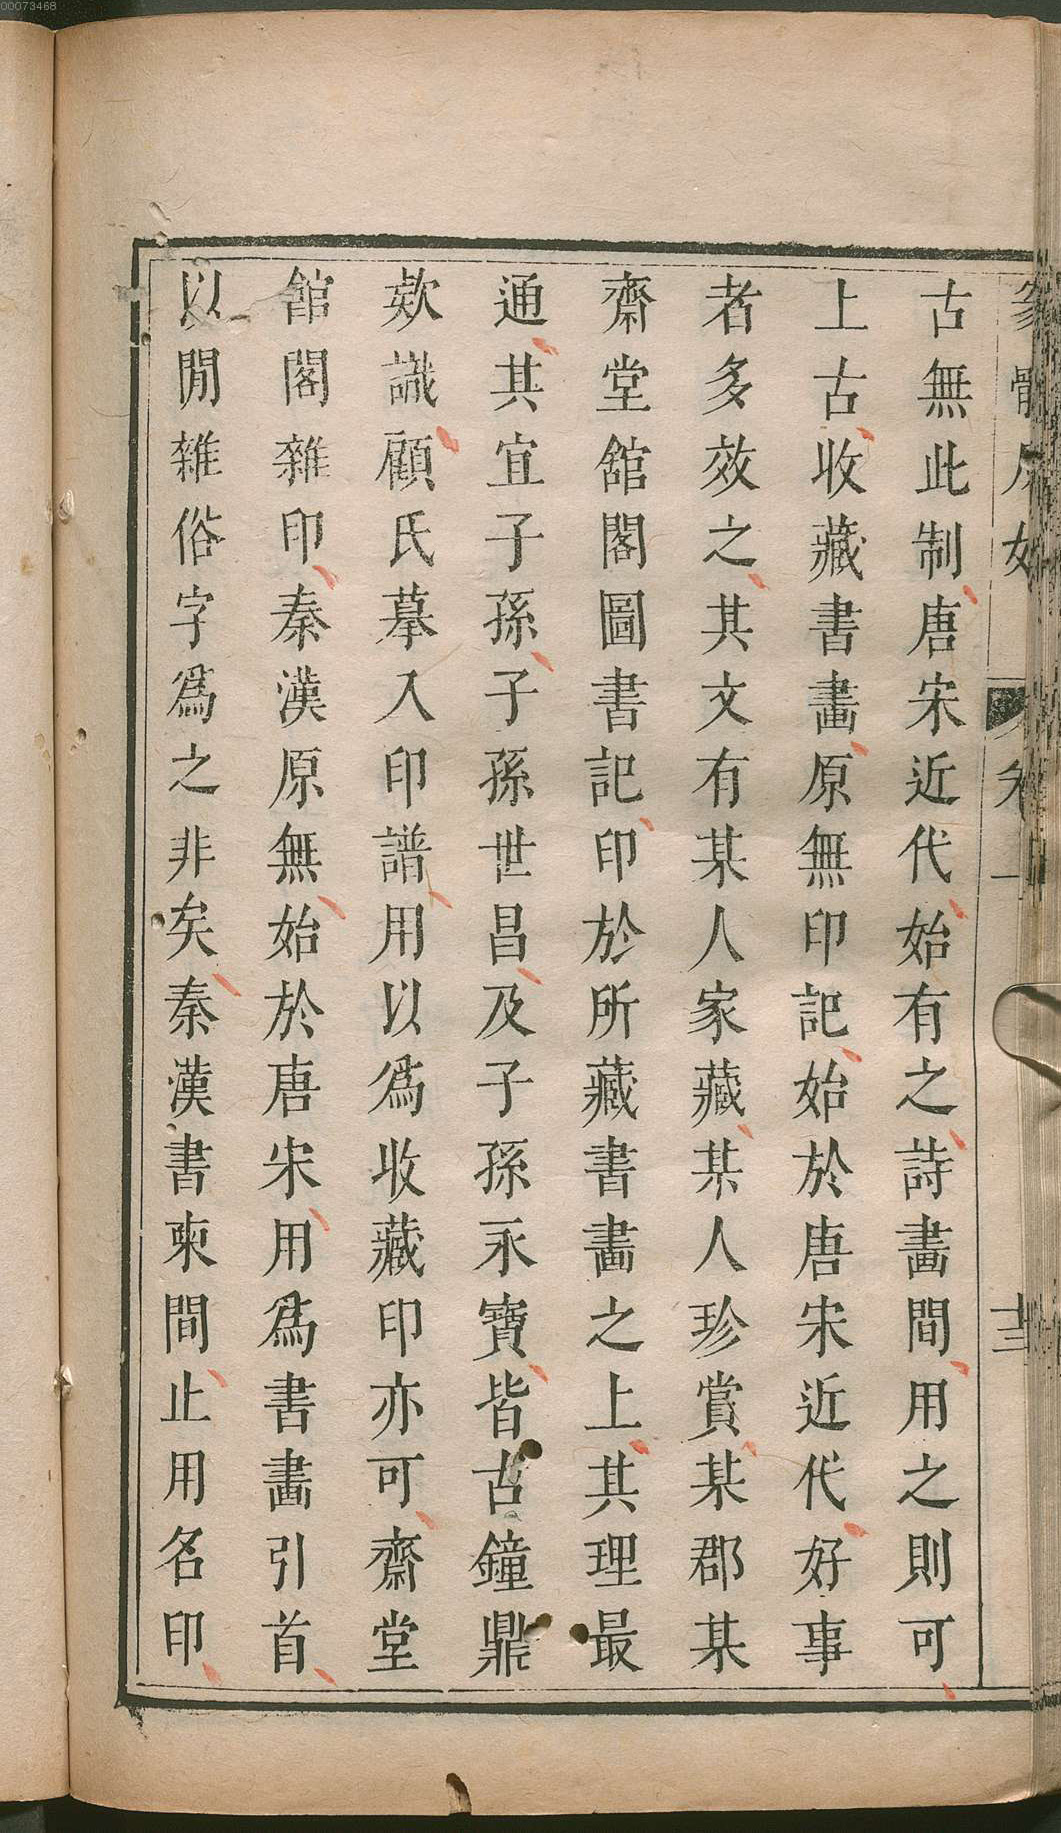 00073468
古無此制唐宋近代始有之詩畵間用之則可
上古收藏書畵原無印記始於唐宋近代好事
者多效之其文有某人家藏某人珍賞某郡某
齋堂舘閣圖書記印於所藏書畵之上其理最
通其宜子孫子孫世昌及子孫永寶皆古鐘鼎
欵識顧氏摹入印譜用以爲收藏印亦可齋堂
舘閣雜印秦漢原無始於唐宋用爲書畵引首
以閒雜俗字爲之非矣秦漢書柬間止用名印